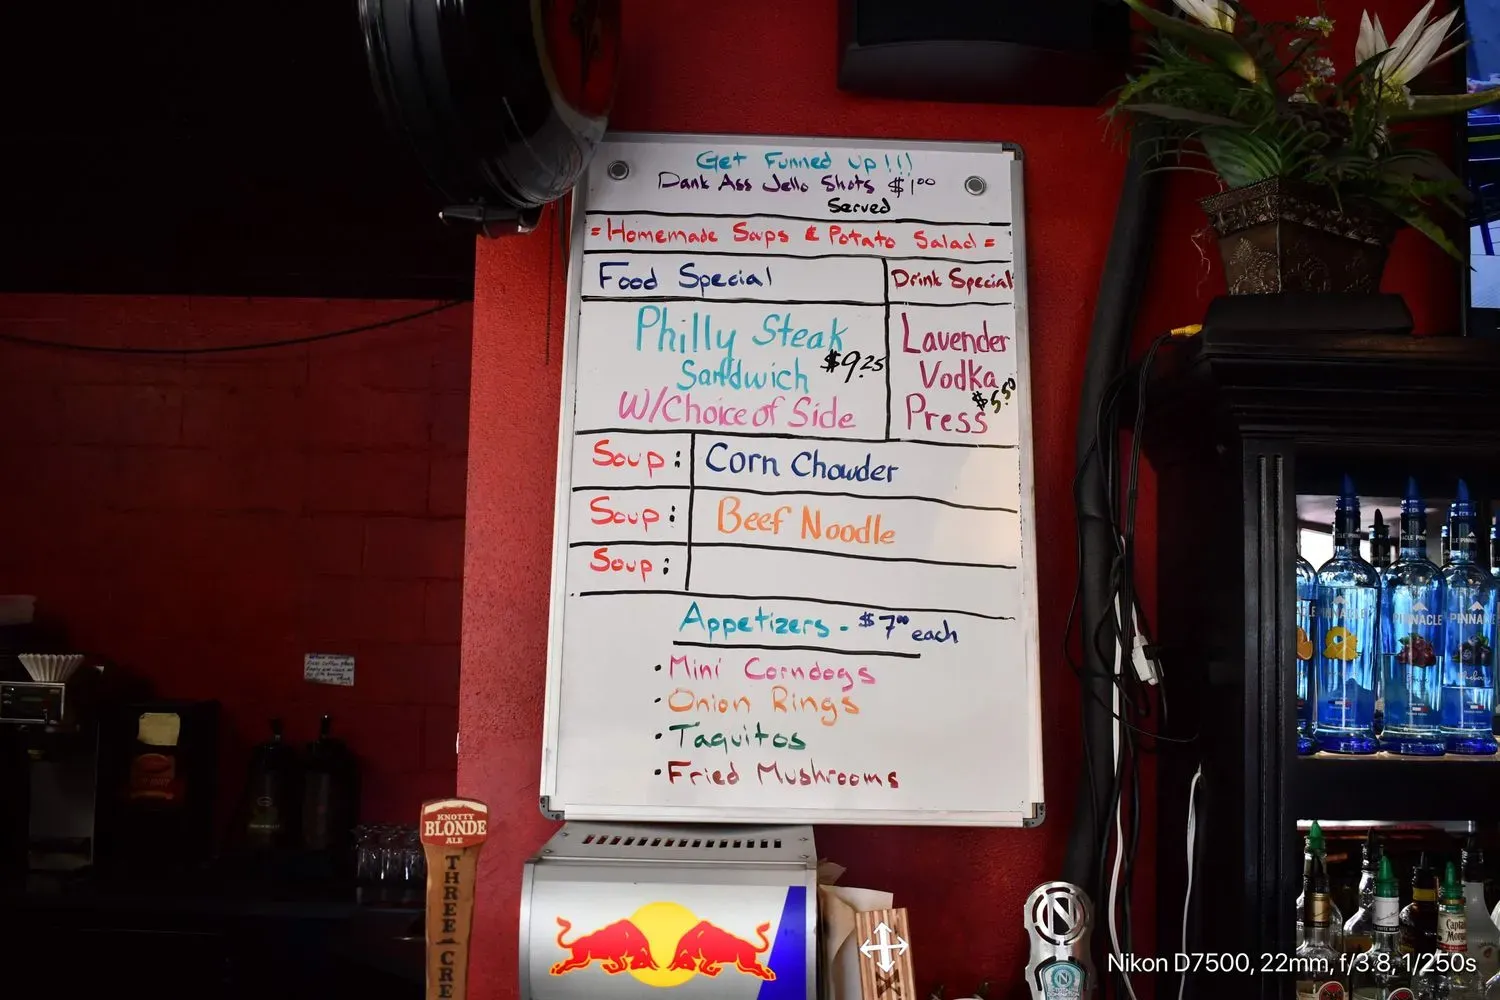 Get Funned Up!!!
Dank Ass Jello Shots $1.00
Served
= Homemade Soups & Potato Salad =
Food Special
Drink Special
Philly Steak
Sandwich $9.25
W/Choice of Side
Lavender
Vodka
Press $5.50
Soup: Corn Chowder
Soup: Beef Noodle
Soup:
Appetizers - $7.00 each
• Mini Corndogs
• Onion Rings
• Taquitos
• Fried Mushrooms
KNOTTY
BLONDE
ALE
THREE CRE
N
PINNACLE
PINNACLE
PINNA
Captain
Nikon D7500, 22mm, f/3.8, 1/250s